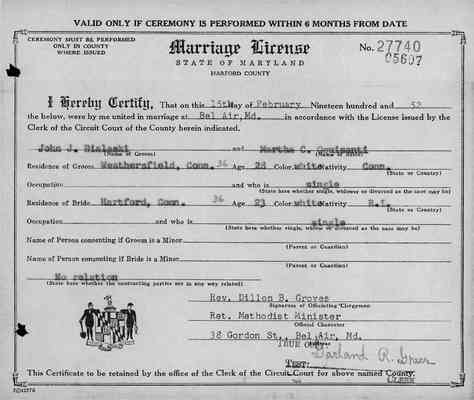 VALID ONLY IF CEREMONY IS PERFORMED WITHIN 6 MONTHS FROM DATE
CEREMONY MUST BE PERFORMED
ONLY IN COUNTY
WHERE ISSUED
Marriage License
STATE OF MARYLAND
HARFORD COUNTY
No. 27740
05607
I Hereby Certify, That on this 15th day of February Nineteen hundred and 52
the below, were by me united in marriage at Bel Air, Md. in accordance with the License issued by the
Clerk of the Circuit Court of the County herein indicated.
John J. Bialaski and Martha C.
(Name of Groom) (Name of Bride)
Residence of Groom Weathersfield, Conn. 36 Age 28 Color white Nativity Conn.
(State or Country)
Occupation and who is single
(State here whether single, widower or divorced as the case may be)
Residence of Bride Hartford, Conn. 36 Age 23 Color white Nativity R.I.
(State or Country)
Occupation and who is single
(State here whether single, widow or divorced as the case may be)
Name of Person consenting if Groom is a Minor
(Parent or Guardian)
Name of Person consenting if Bride is a Minor
(Parent or Guardian)
No relation
(State here whether the contracting parties are in any way related)
Rev. Dillon B. Groves
Signature of Officiating Clergyman
Ret. Methodist Minister
Official Character
38 Gordon St., Bel Air, Md.
TRUE
Garland R. Greer
TEST:
This Certificate to be retained by the office of the Clerk of the Circuit Court for above named County.
CLERK